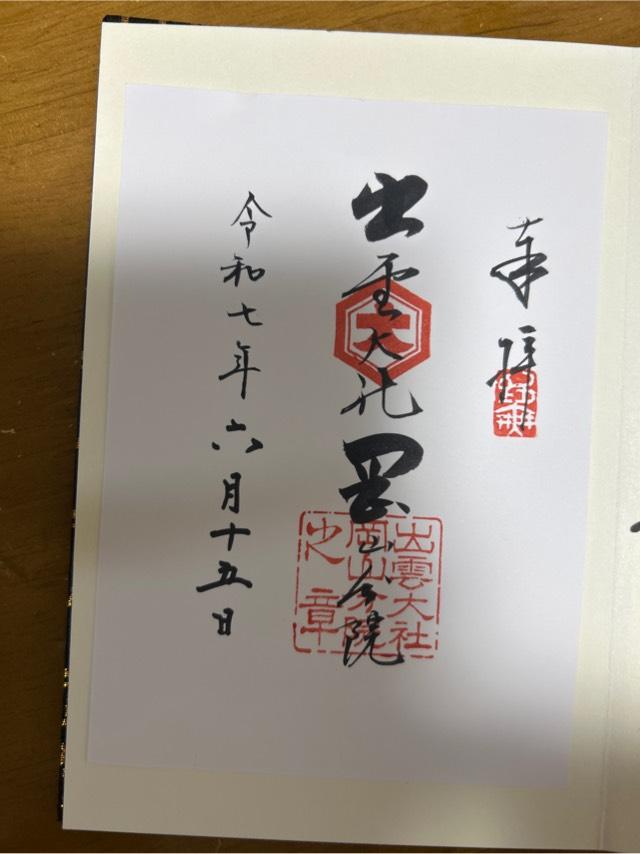 奉拝
出雲大社岡山分院
大
出雲大社
岡山分院
之章
令和七年六月十五日